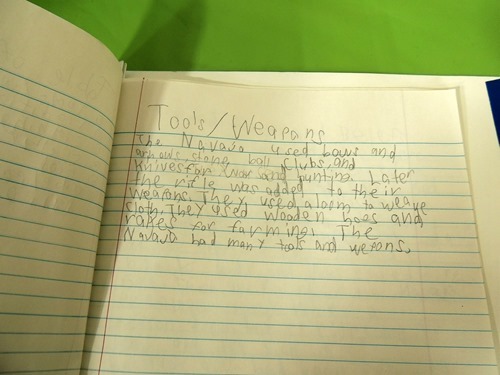 Tools/Weapans
The Navajo used bows and
arrows, stone ball clubs, and
knives for war and hunting. Later
the rifle was added to their
weapans. They used a loom to weave
cloth. They used wooden hoes and
rakes for farming. The
Navajo had many tools and wepans.